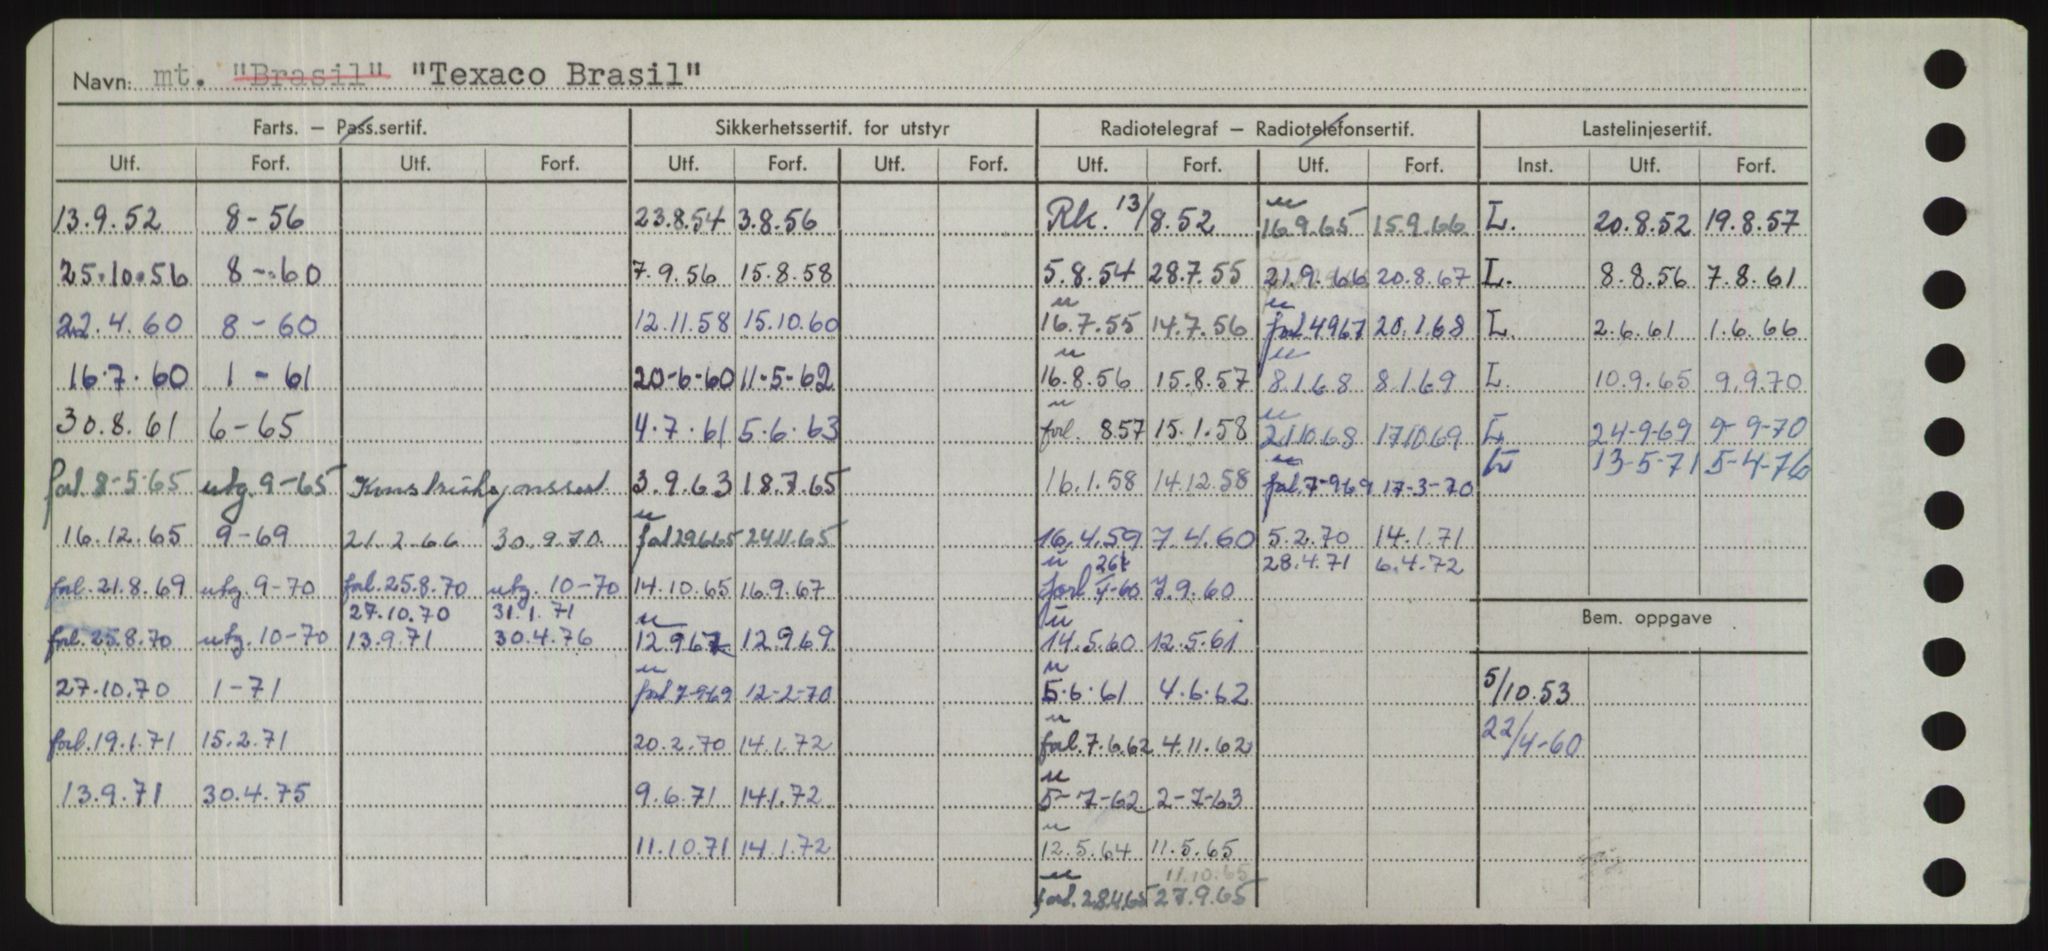 Navn: mt. "Brasil" "Texaco Brasil"
Farts. — Pass.sertif. Sikkerhetssertif. for utstyr Radiotelegraf — Radiotelefonsertif. Lastelinjesertif.
Utf. Forf. Utf. Forf. Utf. Forf. Utf. Forf. Utf. Forf. Utf. Forf. Inst. Utf. Forf.
13.9.52 8-56 23.8.54 3.8.56 Rk. 13/8.52 16.9.65 15.9.66 L. 20.8.52 19.8.57
25.10.56 8-60 7.9.56 15.8.58 5.8.54 28.7.55 21.9.66 20.8.67 L. 8.8.56 7.8.61
22.4.60 8-60 12.11.58 15.10.60 16.7.55 14.7.56 forl 4967 20.1.68 L. 2.6.61 1.6.66
16.7.60 1-61 20-6-60 11-5-62 16.8.56 15.8.57 8.1.68 8.1.69 L. 10.9.65 9.9.70
30.8.61 6-65 4.7.61 5.6.63 forl. 857 15.1.58 21.10.68 17.10.69 L. 24-9-69 9-9-70
L 13-5-71 5-4-76
forl 8-5-65 utg. 9-65 Konstruksjonssert. 3.9.63 18.7.65 16.1.58 14.12.58 forl. 7-969 17-3-70
16.12.65 9-69 21.2.66 30.9.70 forl 29.6.65 24.11.65 16.4.59 7.4.60 5.2.70 14.1.71
28.4.71 6.4.72
forl. 21.8.69 utg. 9-70 forl. 25.8.70 utg. 10-70 14.10.65 16.9.67 forl 7.9.60
27.10.70 31.1.71
Bem. oppgave
forl. 25.8.70 utg. 10-70 13.9.71 30.4.76 12.9.67 12.9.69 14.5.60 12.5.61
27.10.70 1-71 forl 7-9-69 12-2-70 5.6.61 4.6.62 5/10.53
forl. 19.1.71 15.2.71 20.2.70 14.1.72 forl. 7.6.62 4.11.62 22/4-60
13.9.71 30.4.75 9.6.71 14.1.72 5-7-62 2-7-63
11.10.71 14.1.72 12.5.64 11.5.65
11.10.65
forl. 28.4.65 27.9.65